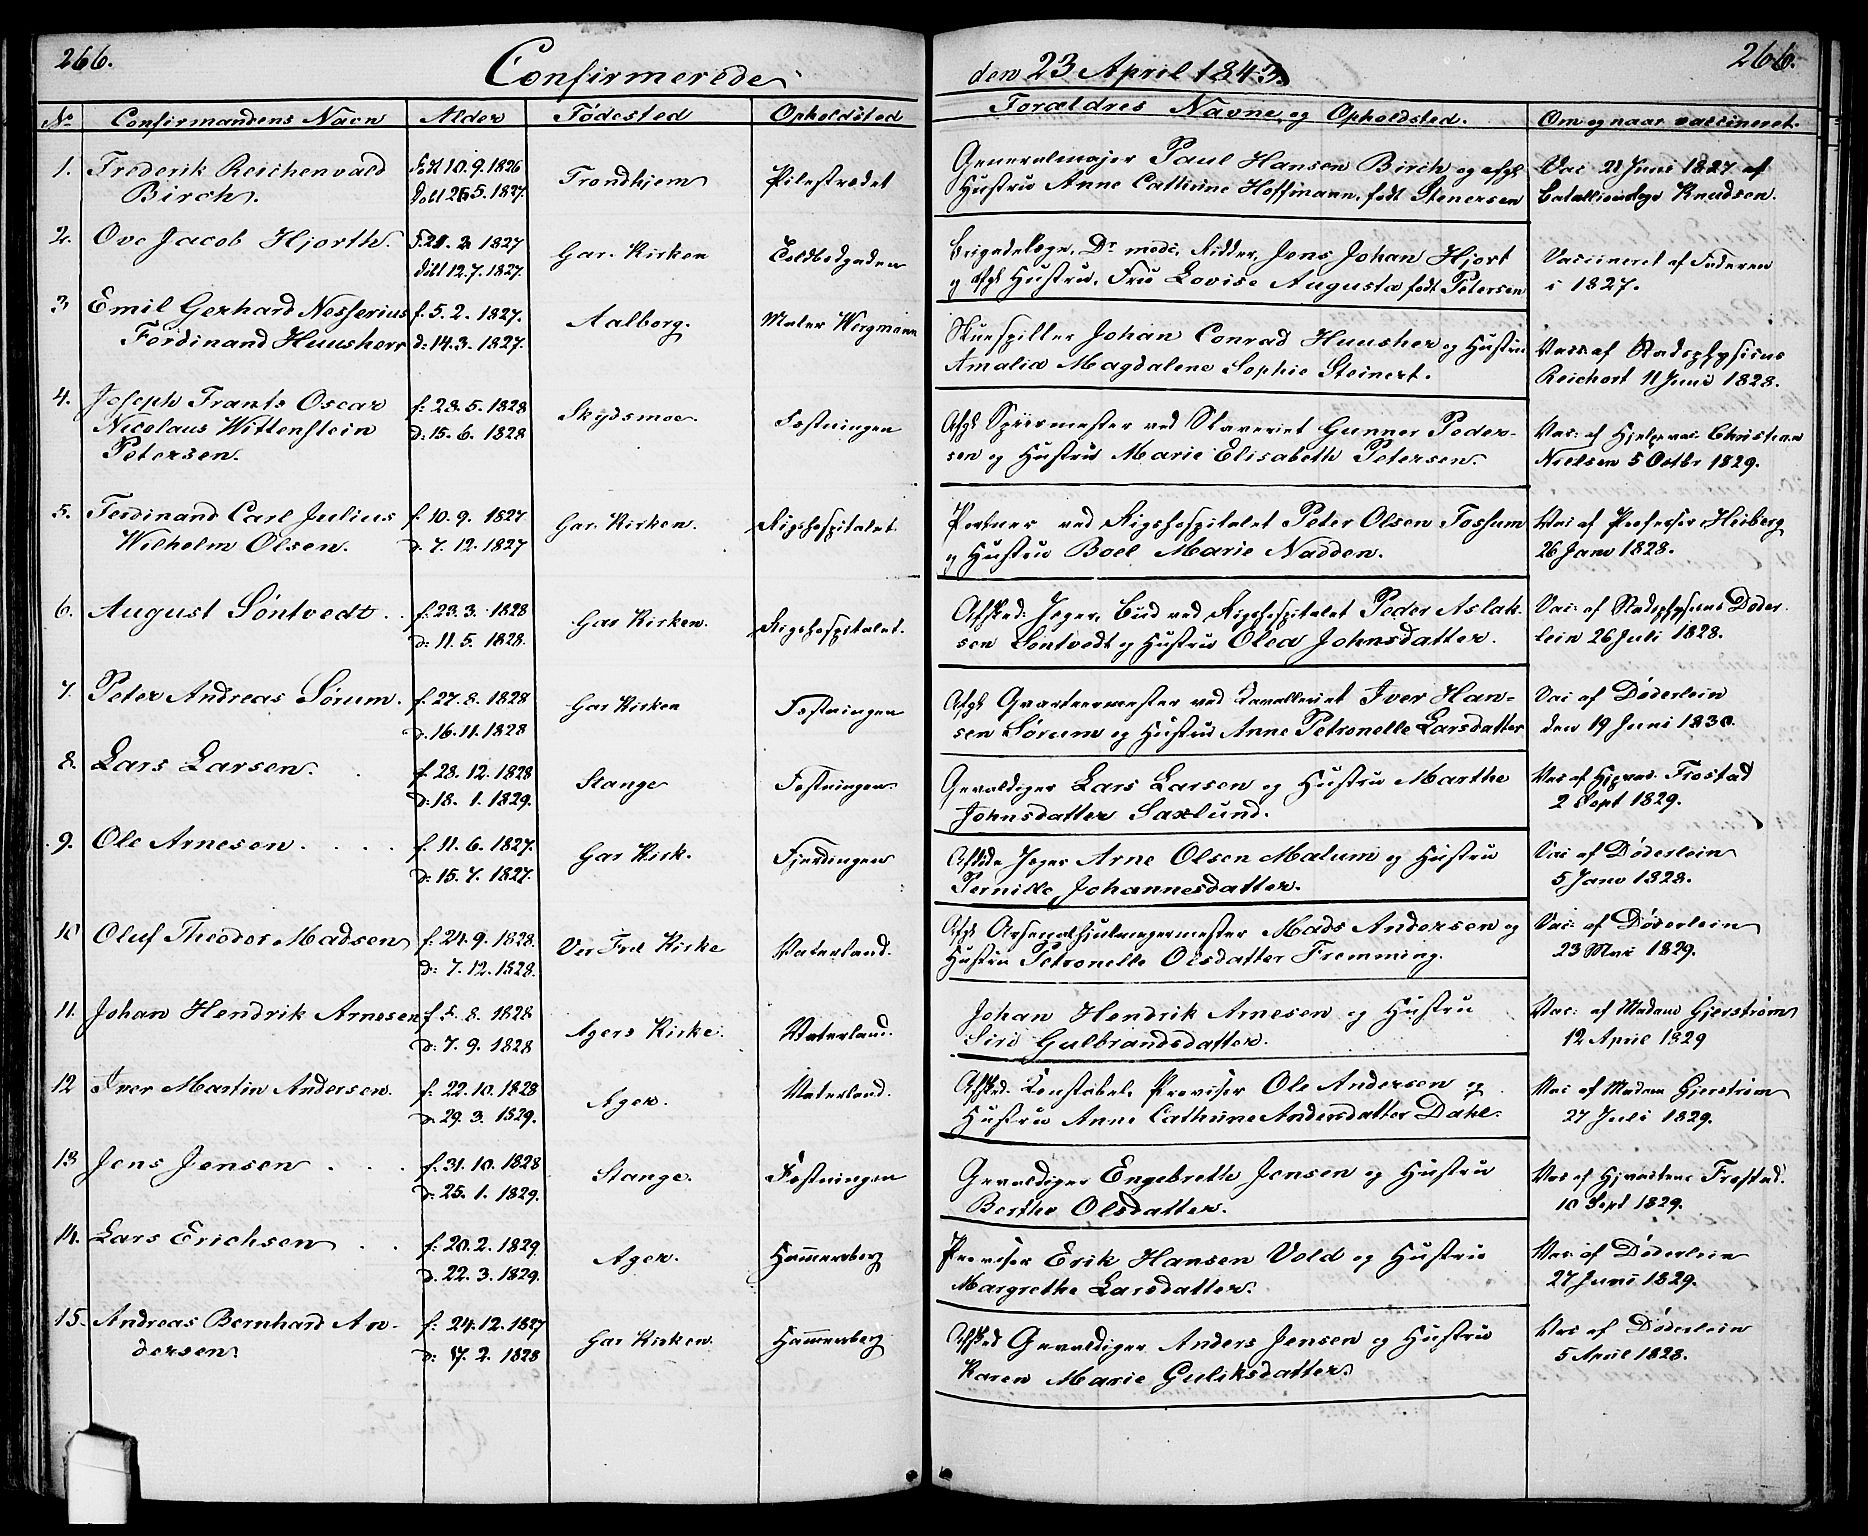 266.
Confirmerede
den 23 April 1843.
266.
No Confirmandens Navn Alder Fødested Opholdsted Forældres Navne og Opholdsted. Om og naar vaccineret.
1. Frederik Reichenvald født 10.9.1826 Trondhjem Pilestrædet Generalmajor Paul Hansen Birch og afgl Vac 21 Juni 1827 af
Birch. døbt 26.5.1827. Hustru Anne Cathrine Hoffmann, født Stenersen Bataillonslæge Knudsen.
2. Ove Jacob Hjorth. f. 21. 2. 1827 Gar. Kirken Toldbodgaden Brigadelæge, Dr. medi, Ridder, Jens Johan Hjort Vaccineret af Faderen
døbt 12.7.1827. og afgl Hustru, Fru Lovise Augusta født Petersen i 1827.
3 Emil Gerhard Nesserius f. 5. 2. 1827. Aalborg. Maler Wergmann Skuespiller Johan Conrad Huusher og Hustru Vacc: af Stadsphysicus
Ferdinand Huusherr d: 14. 3. 1827. Amalia Magdalene Sophie Steinert. Reichort 11 Juni 1828.
4. Joseph Frants Oscar f: 28. 5. 1828 Skydsmoe Fæstningen Afgl Sporemester ved Staveriet Gunner Peder- Vac: af Hjelpevac. Christian
Nicolaus Wittenstein d: 15. 6. 1828 sen og Hustru Marie Elisabeth Petersen. Nielsen 5 Octbr 1829.
Petersen.
5. Ferdinand Carl Julius f. 10. 9. 1827 Gar. Kirken. Rigshospitalet. Portner ved Rigshospitalet Peter Olsen Fossum Vac af Professor Heiberg
Wilhelm Olsen. d. 7. 12. 1827 og Hustru Boel Marie Nadden. 26 Janv 1828.
6. August Söntvedt. f. 23. 3. 1828 Gar Kirken. Rigshospitalet. Afsked: Jeger, Bud ved Rigshospitalet Peder Aslak- Vac: af Stadsphysicus Døder-
d: 11. 5. 1828. sen Söntvedt og Hustru Olea Johnsdatter. lein 26 Juli 1828.
7. Peter Andreas Sørum. f. 27. 8. 1828 Gar Kirken Fæstningen Afgl Qvarteermester ved Cavalleriet Iver Han- Vac af Døderlein
d. 16. 11. 1828 sen Sørum og Hustru Anne Petronelle Larsdatter den 19 Juni 1830.
8. Lars Larsen. f. 28. 12. 1828 Stange Fæstningen Gevaldiger Lars Larsen og Hustru Marthe Vac af Hjvac. Frostad
d: 18. 1. 1829. Johnsdatter Saxlund. 2 Sept 1829.
9. Ole Arnesen f. 11. 6. 1827. Gar Kirk. Fjerdingen Afskde Jeger Arne Olsen Malum og Hustru Vac af Døderlein
d: 15. 7. 1827. Pernille Johannesdatter. 5 Janv 1828.
10 Oluf Theodor Madsen f. 24. 9. 1828. Vor Frel Kirke Vaterland. Afgl Arsenalhjulmagermester Mads Andersen og Vac: af Døderlein
d: 7. 12. 1828. Hustru Petronelle Olsdatter Fremming. 23 Mai 1829.
11. Johan Hendrik Arnesen f. 5. 8. 1828 Agers Kirke. Vaterland. Johan Hendrik Arnesen og Hustru Vac: af Madam Gjerstrøm
d: 7. 9. 1828 Siri Gulbrandsdatter. 12 April 1829
12 Iver Martin Andersen. f: 22. 10. 1828 Ager. Vaterland. Afsked: Konstabel, Provisor Ole Andersen og Vac af Madam Gjerstrøm
d. 29. 3. 1829. Hustru Anne Cathrine Andersdatter Dahl. 27 Juli 1829.
13 Jens Jensen f: 31. 10. 1828 Stange. Fæstningen Gevaldiger Engebreth Jensen og Hustru Vac af Hjvactne Frostad.
d: 25. 1. 1829. Berthe Olsdatter. 10 Sept 1829.
14. Lars Erichsen f: 20. 2. 1829. Ager. Hammersberg Provisor Erik Hansen Vold og Hustru Vac: af Døderlein
d. 22. 3. 1829. Margrethe Larsdatter. 27 Juni 1829.
15. Andreas Bernhard An- f. 24. 12. 1827 Gar Kirken. Hammersberg Afsked Gevaldiger Anders Jensen og Hustru Vac af Døderlein
dersen. d: 17. 2. 1828 Karen Marie Guliksdatter. 5 April 1828.